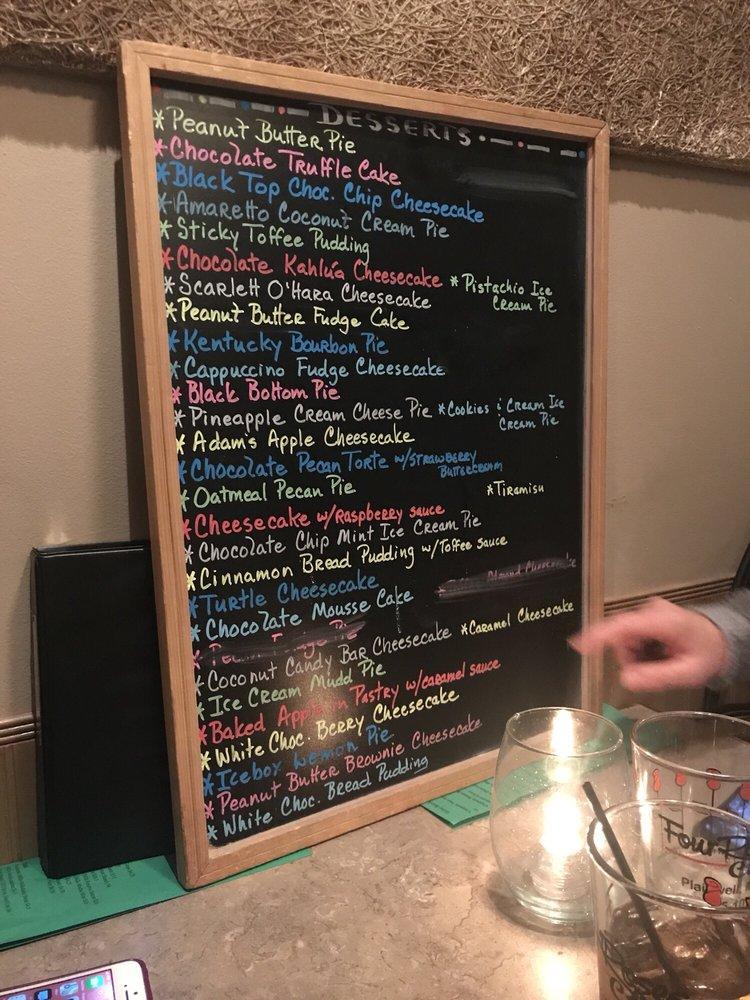 DESSERTS
*Peanut Butter Pie
*Chocolate Truffle Cake
*Black Top Choc. Chip Cheesecake
*Amaretto Coconut Cream Pie
*Sticky Toffee Pudding
*Chocolate Kahlúa Cheesecake *Pistachio Ice
Cream Pie
*Scarlett O'Hara Cheesecake
*Peanut Butter Fudge Cake
*Kentucky Bourbon Pie
*Cappuccino Fudge Cheesecake
*Black Bottom Pie
*Pineapple Cream Cheese Pie *Cookies & Cream Ice
Cream Pie
*Adam's Apple Cheesecake
*Chocolate Pecan Torte w/STRAWBERRY
BUTTERCREAM
*Oatmeal Pecan Pie
*Tiramisu
*Cheesecake w/Raspberry sauce
*Chocolate Chip Mint Ice Cream Pie
*Cinnamon Bread Pudding w/Toffee sauce
*Turtle Cheesecake
*Chocolate Mousse Cake
Pie
*Coconut Candy Bar Cheesecake *Caramel Cheesecake
*Ice Cream Mudd Pie
*Baked Apple in Pastry w/caramel sauce
*White Choc. Berry Cheesecake
*Icebox Lemon Pie
*Peanut Butter Brownie Cheesecake
*White Choc. Bread Pudding
Four